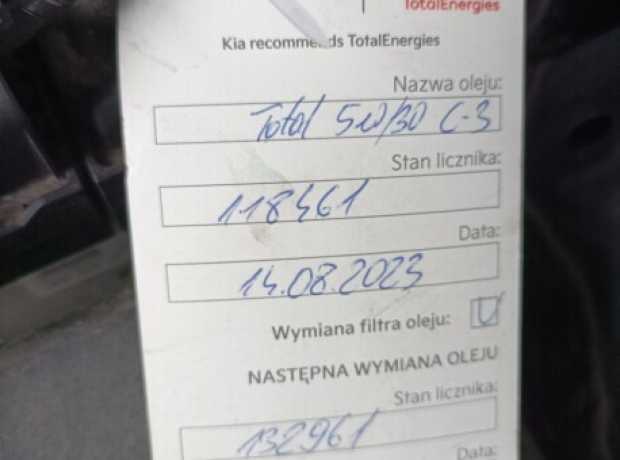 TotalEnergies
Kia recommends TotalEnergies
Nazwa oleju:
Total 5w/30 C-3
Stan licznika:
118461
Data:
14.08.2023
Wymiana filtra oleju:
NASTĘPNA WYMIANA OLEJU
Stan licznika:
132961
Data: